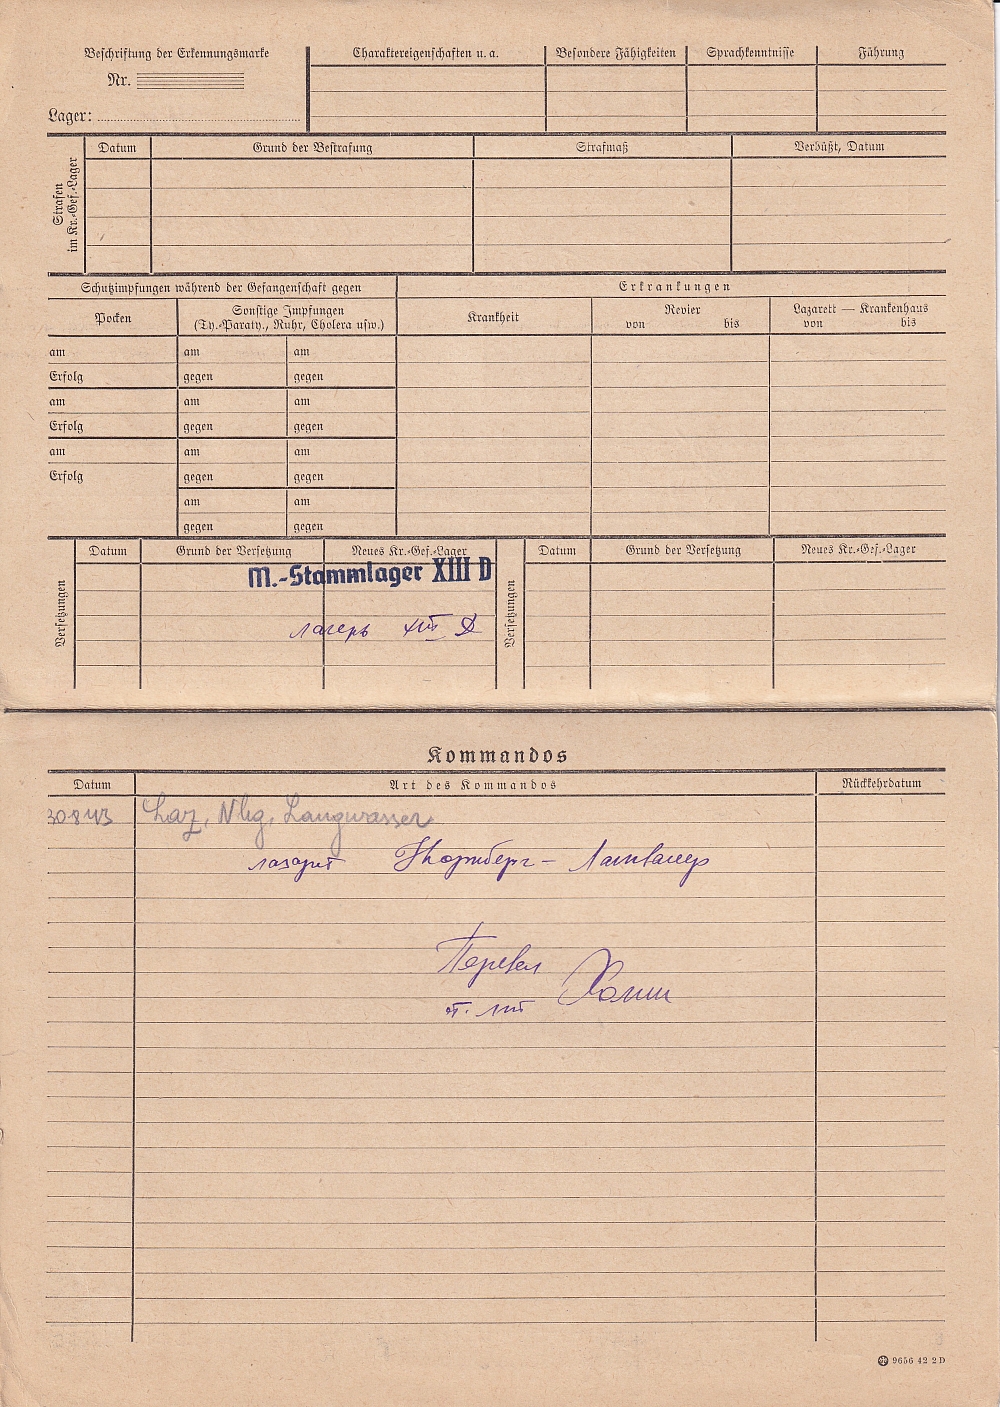 Beschriftung der Erkennungsmarke
Nr.
Lager:
Charaktereigenschaften u. a.
Besondere Fähigkeiten
Sprachkenntnisse
Führung
Strafen
im Kr.-Gef.-Lager
Datum
Grund der Bestrafung
Strafmaß
Verbüßt, Datum
Schutzimpfungen während der Gefangenschaft gegen
Erkrankungen
Pocken
Sonstige Impfungen
(Ty.-Paraty., Ruhr, Cholera usw.)
Krankheit
Revier
von bis
Lazarett — Krankenhaus
von bis
am am am
Erfolg gegen gegen
am am am
Erfolg gegen gegen
am am am
Erfolg gegen gegen
am am
gegen gegen
Versetzungen
Datum
Grund der Versetzung
Neues Kr.-Gef.-Lager
M.-Stammlager XIII D
лагерь XIII D
Versetzungen
Datum
Grund der Versetzung
Neues Kr.-Gef.-Lager
Kommandos
Datum
Art des Kommandos
Rückkehrdatum
30 8 43 Laz, Nbg, Langwasser
лазарет Нюрнберг - Лангвассер
Перевел
9656 42 2 D